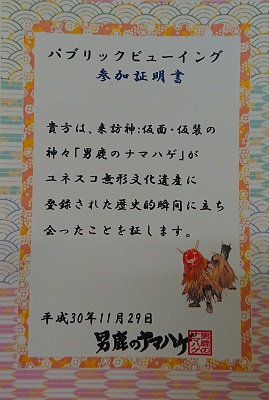 パブリックビューイング
参加証明書
貴方は、来訪神:仮面・仮装の
神々「男鹿のナマハゲ」が
ユネスコ無形文化遺産に
登録された歴史的瞬間に立ち
会ったことを証します。
平成30年11月29日
男鹿のナマハゲ
男鹿の
ナマハゲ